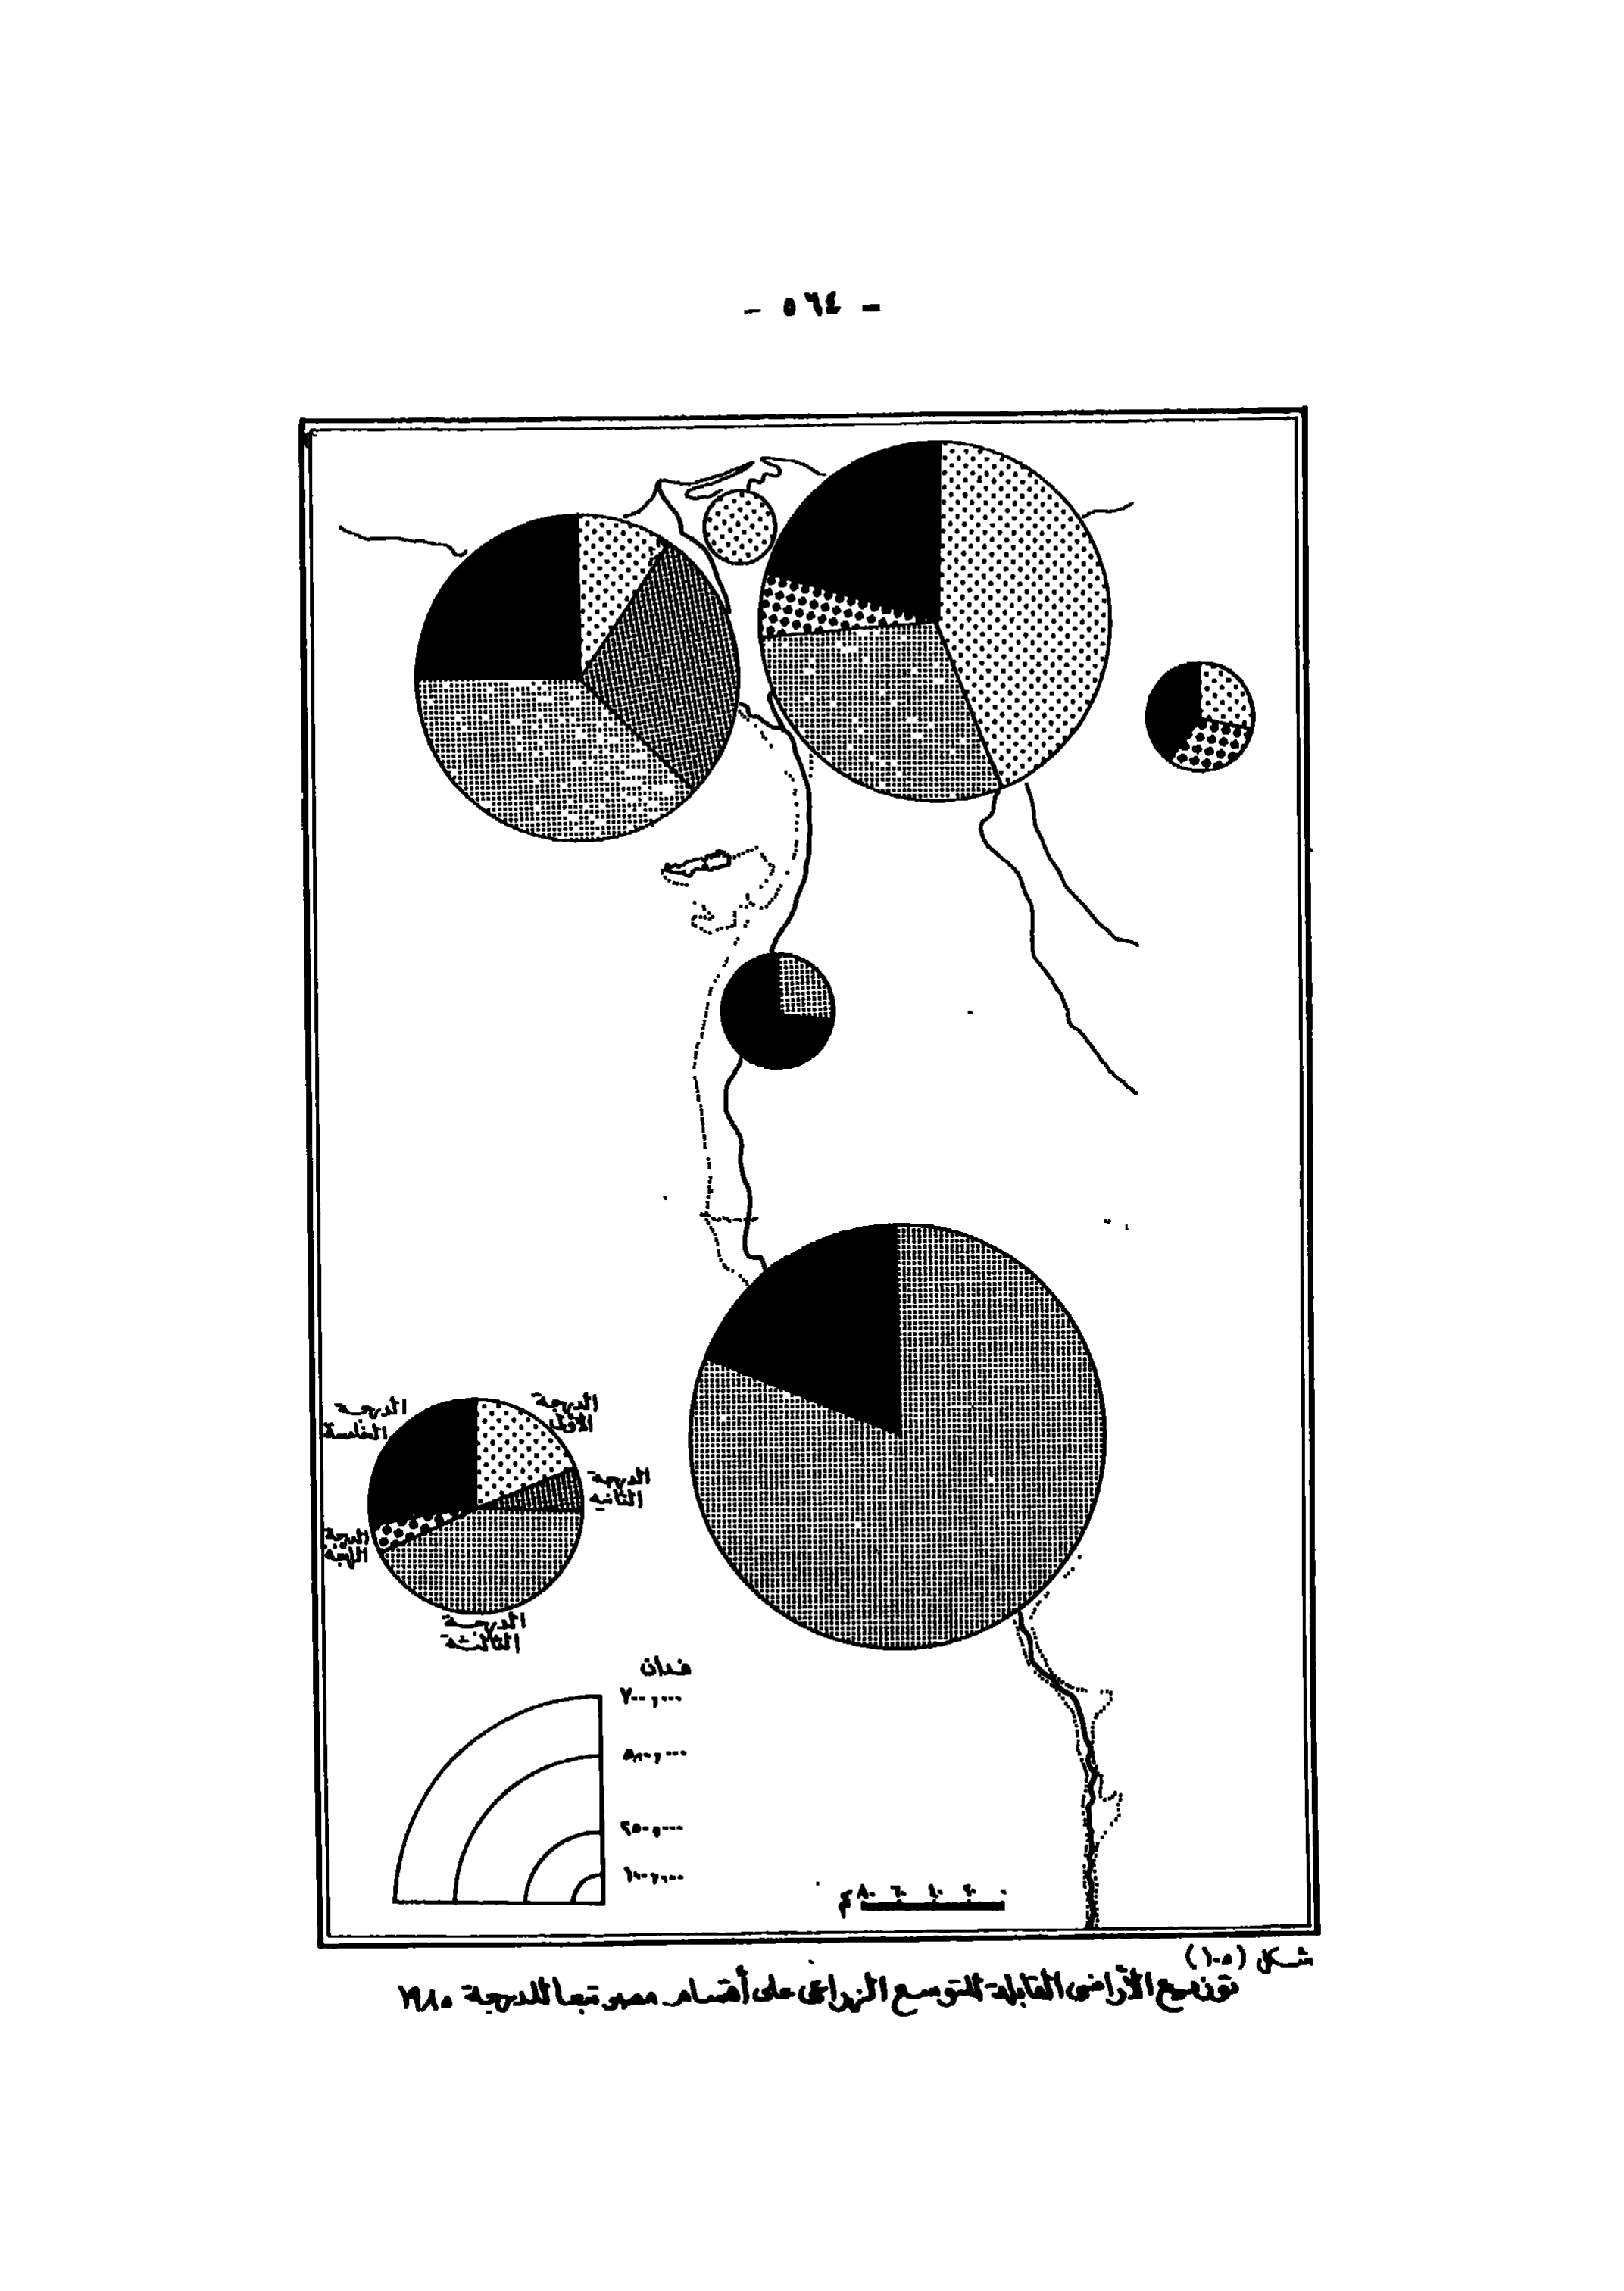 - ٥٦٤ -
الدرجة
الأولى
الدرجة
الثانية
الدرجة
الثالثة
الدرجة
الرابعة
الدرجة
الخامسة
فدان
٧٠٠,٠٠٠
٥٠٠,٠٠٠
٢٥٠,٠٠٠
١٠٠,٠٠٠
كم ٨٠ ٦٠ ٤٠ ٢٠ ٠
شكل (١٠٥)
توزيع الأراضى القابلة للتوسع الزراعى على أقسام مصر تبعا للدرجة ١٩٨٥